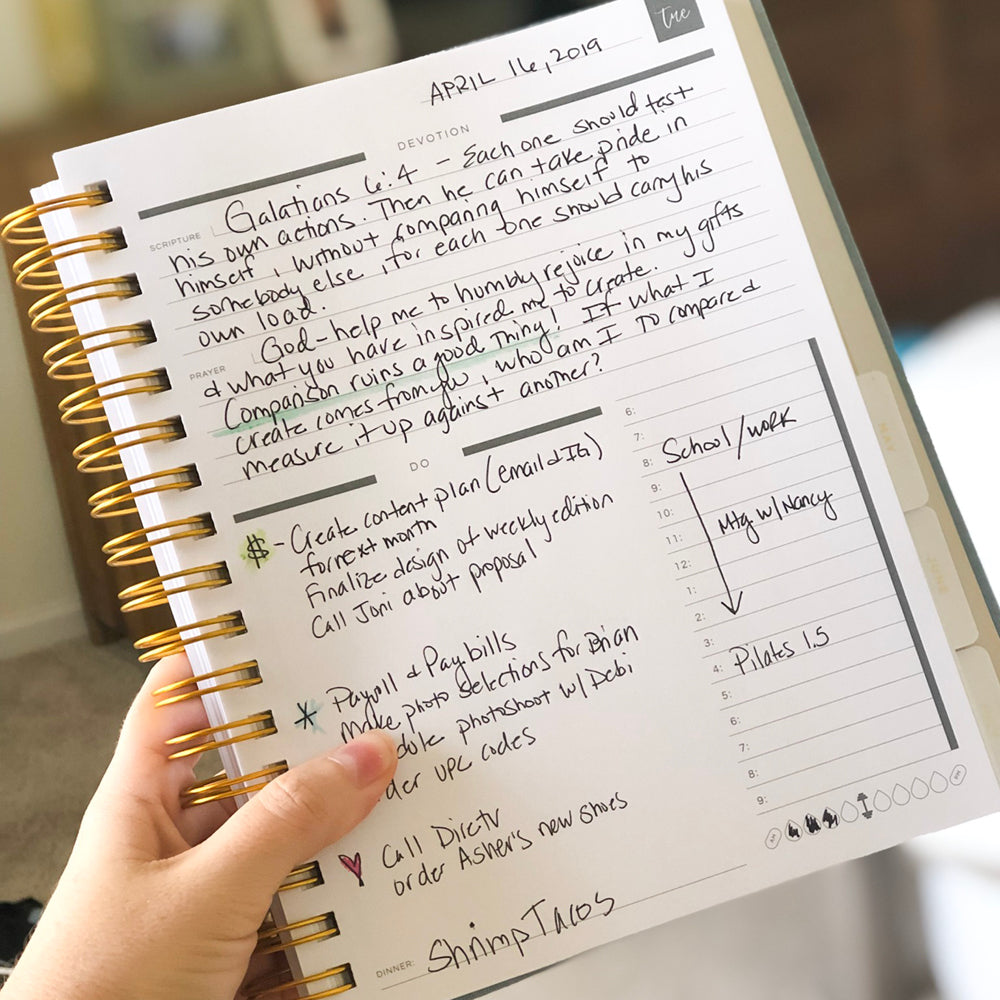 tue
APRIL 16, 2019
DEVOTION
SCRIPTURE
Galatians 6:4 - Each one should test
his own actions. Then he can take pride in
himself, without comparing himself to
somebody else, for each one should carry his
own load.
PRAYER
God-help me to humbly rejoice in my gifts
& what you have inspired me to create.
Comparison ruins a good thing! If what I
create comes from you, who am I to compare &
measure it up against another?
DO
$ - Create content plan (email & IG)
for next month
Finalize design of weekly edition
Call Joni about proposal
* Payroll & Pay bills
Make photo selections for Brian
dule photoshoot w/ Debi
der UPC codes
Call Directv
order Asher's new shoes
DINNER: Shrimp Tacos
6:
7:
8: School/work
9:
10:
11: Mtg w/ Nancy
12:
1:
2:
3:
4: Pilates 1.5
5:
6:
7:
8:
9:
AM
PM
MAY
JUNE